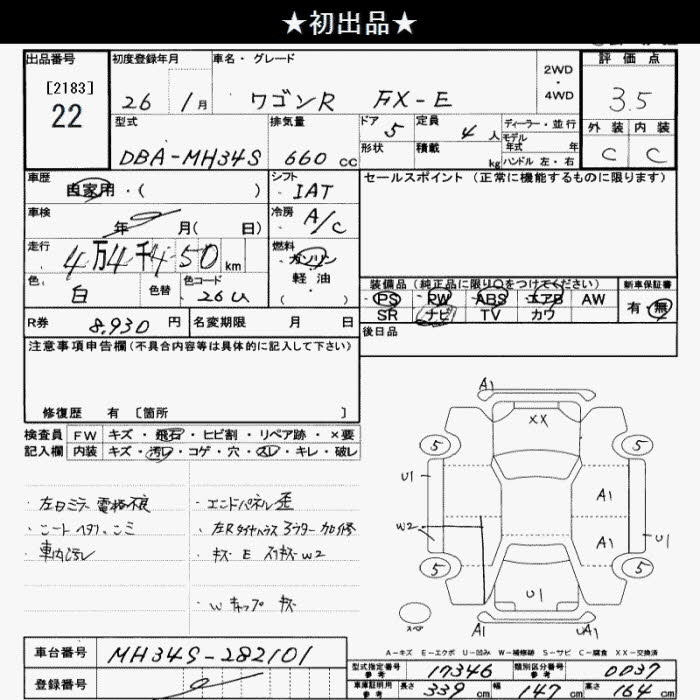 ★初出品★
出品番号
[2183]
22
初度登録年月
26 1月
車名・グレード
ワゴンR FX-E
2WD
・
4WD
評価点
3.5
外装 内装
C C
型式
DBA-MH34S
排気量
660 cc
ドア 5
形状
定員 4 人
積載 kg
ディーラー・並行
モデル
年式 年
ハンドル 左・右
車歴
自家用・( )
シフト
IAT
セールスポイント(正常に機能するものに限ります)
車検
年 月( 日)
冷房
A/C
走行
4万4千450km
燃料
ガソリン
軽油
( )
色
白
色替
色コード
26U
装備品(純正品に限り○をつけてください)
PS PW ABS エアB AW
SR ナビ TV カワ
新車保証書
有・無
R券 8,930 円
名変期限 月 日
後日品
注意事項申告欄(不具合内容等は具体的に記入して下さい)
修復歴 有 [箇所 ]
検査員
記入欄
FW キズ・飛石・ヒビ割・リペア跡・×要
内装 キズ・汚レ・コゲ・穴・スレ・キレ・破レ
・左日ミラー電格不良
・シートヘタリ、コミ
・車内汚レ
・エンドパネル歪
・左Rタイヤハウス
・キズ E スリキズ W2
Wキャップ キズ
A1
XX
5 5
U1
A1
W2
A1
U1
5 5
U1
スペア
A1 UA1
A-キズ E-エクボ U-凹み W-補修跡 S-サビ C-腐食 XX-交換済
車台番号 MH34S-282101
登録番号
型式指定番号
参考
17346
類別区分番号
参考
0037
車庫証明用
参考
長さ 339 cm 幅 147 cm 高さ 164 cm